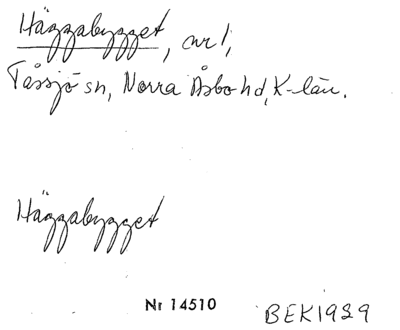 Häggabygget, nr 1,
Tåssjö sn, Norra Åsbo hd, K-län.
Häggabygget
Nr 14510
BEK 1929